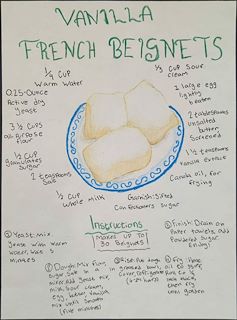 VANILLA
FRENCH BEIGNETS
1/4 CUP
Warm Water
0.25-Ounce
Active dry
Yeast
3 1/2 CUPS
all purpose
flour
1/2 CUP
granulated
Sugar
2 teaspoons
Salt
1/2 CUP
Whole Milk
1/3 CUP Sour
cream
1 large egg
lightly
beaten
2 tablespoons
unsalted
butter,
Softened
1 1/2 teaspoons
Vanilla extract
Canola oil, for
frying
Garnish: Sifted
Confectioners Sugar
Instructions
MAKES UP TO
30 Beignets
① Yeast mix.
Yeast with warm
water, wait 5
minutes
② Dough: Mix flour,
Sugar, Salt in a
mixer. Add Yeast mix,
milk, Sour cream,
egg, butter, vanilla
mix until Smooth
(five minutes)
③ Rise: Put dough
in greased bowl,
Cover, let
(2-24 hrs)
④ Fry:
⑤ Finish: Drain on
Paper towels, add
Powdered Sugar
Enjoy!